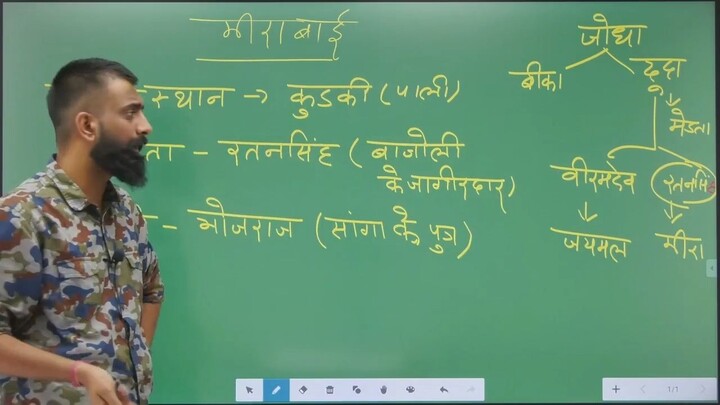 मीरा बाई
स्थान → कुडकी (पाली)
ता - रतनसिंह ( बाजोली
के जागीरदार)
- भोजराज (सांगा के पुत्र)
जोधा
बीका दूदा
↓
मेडता
वीरमदेव रतनसिंह
↓ ↓
जयमल मीरा
1/1